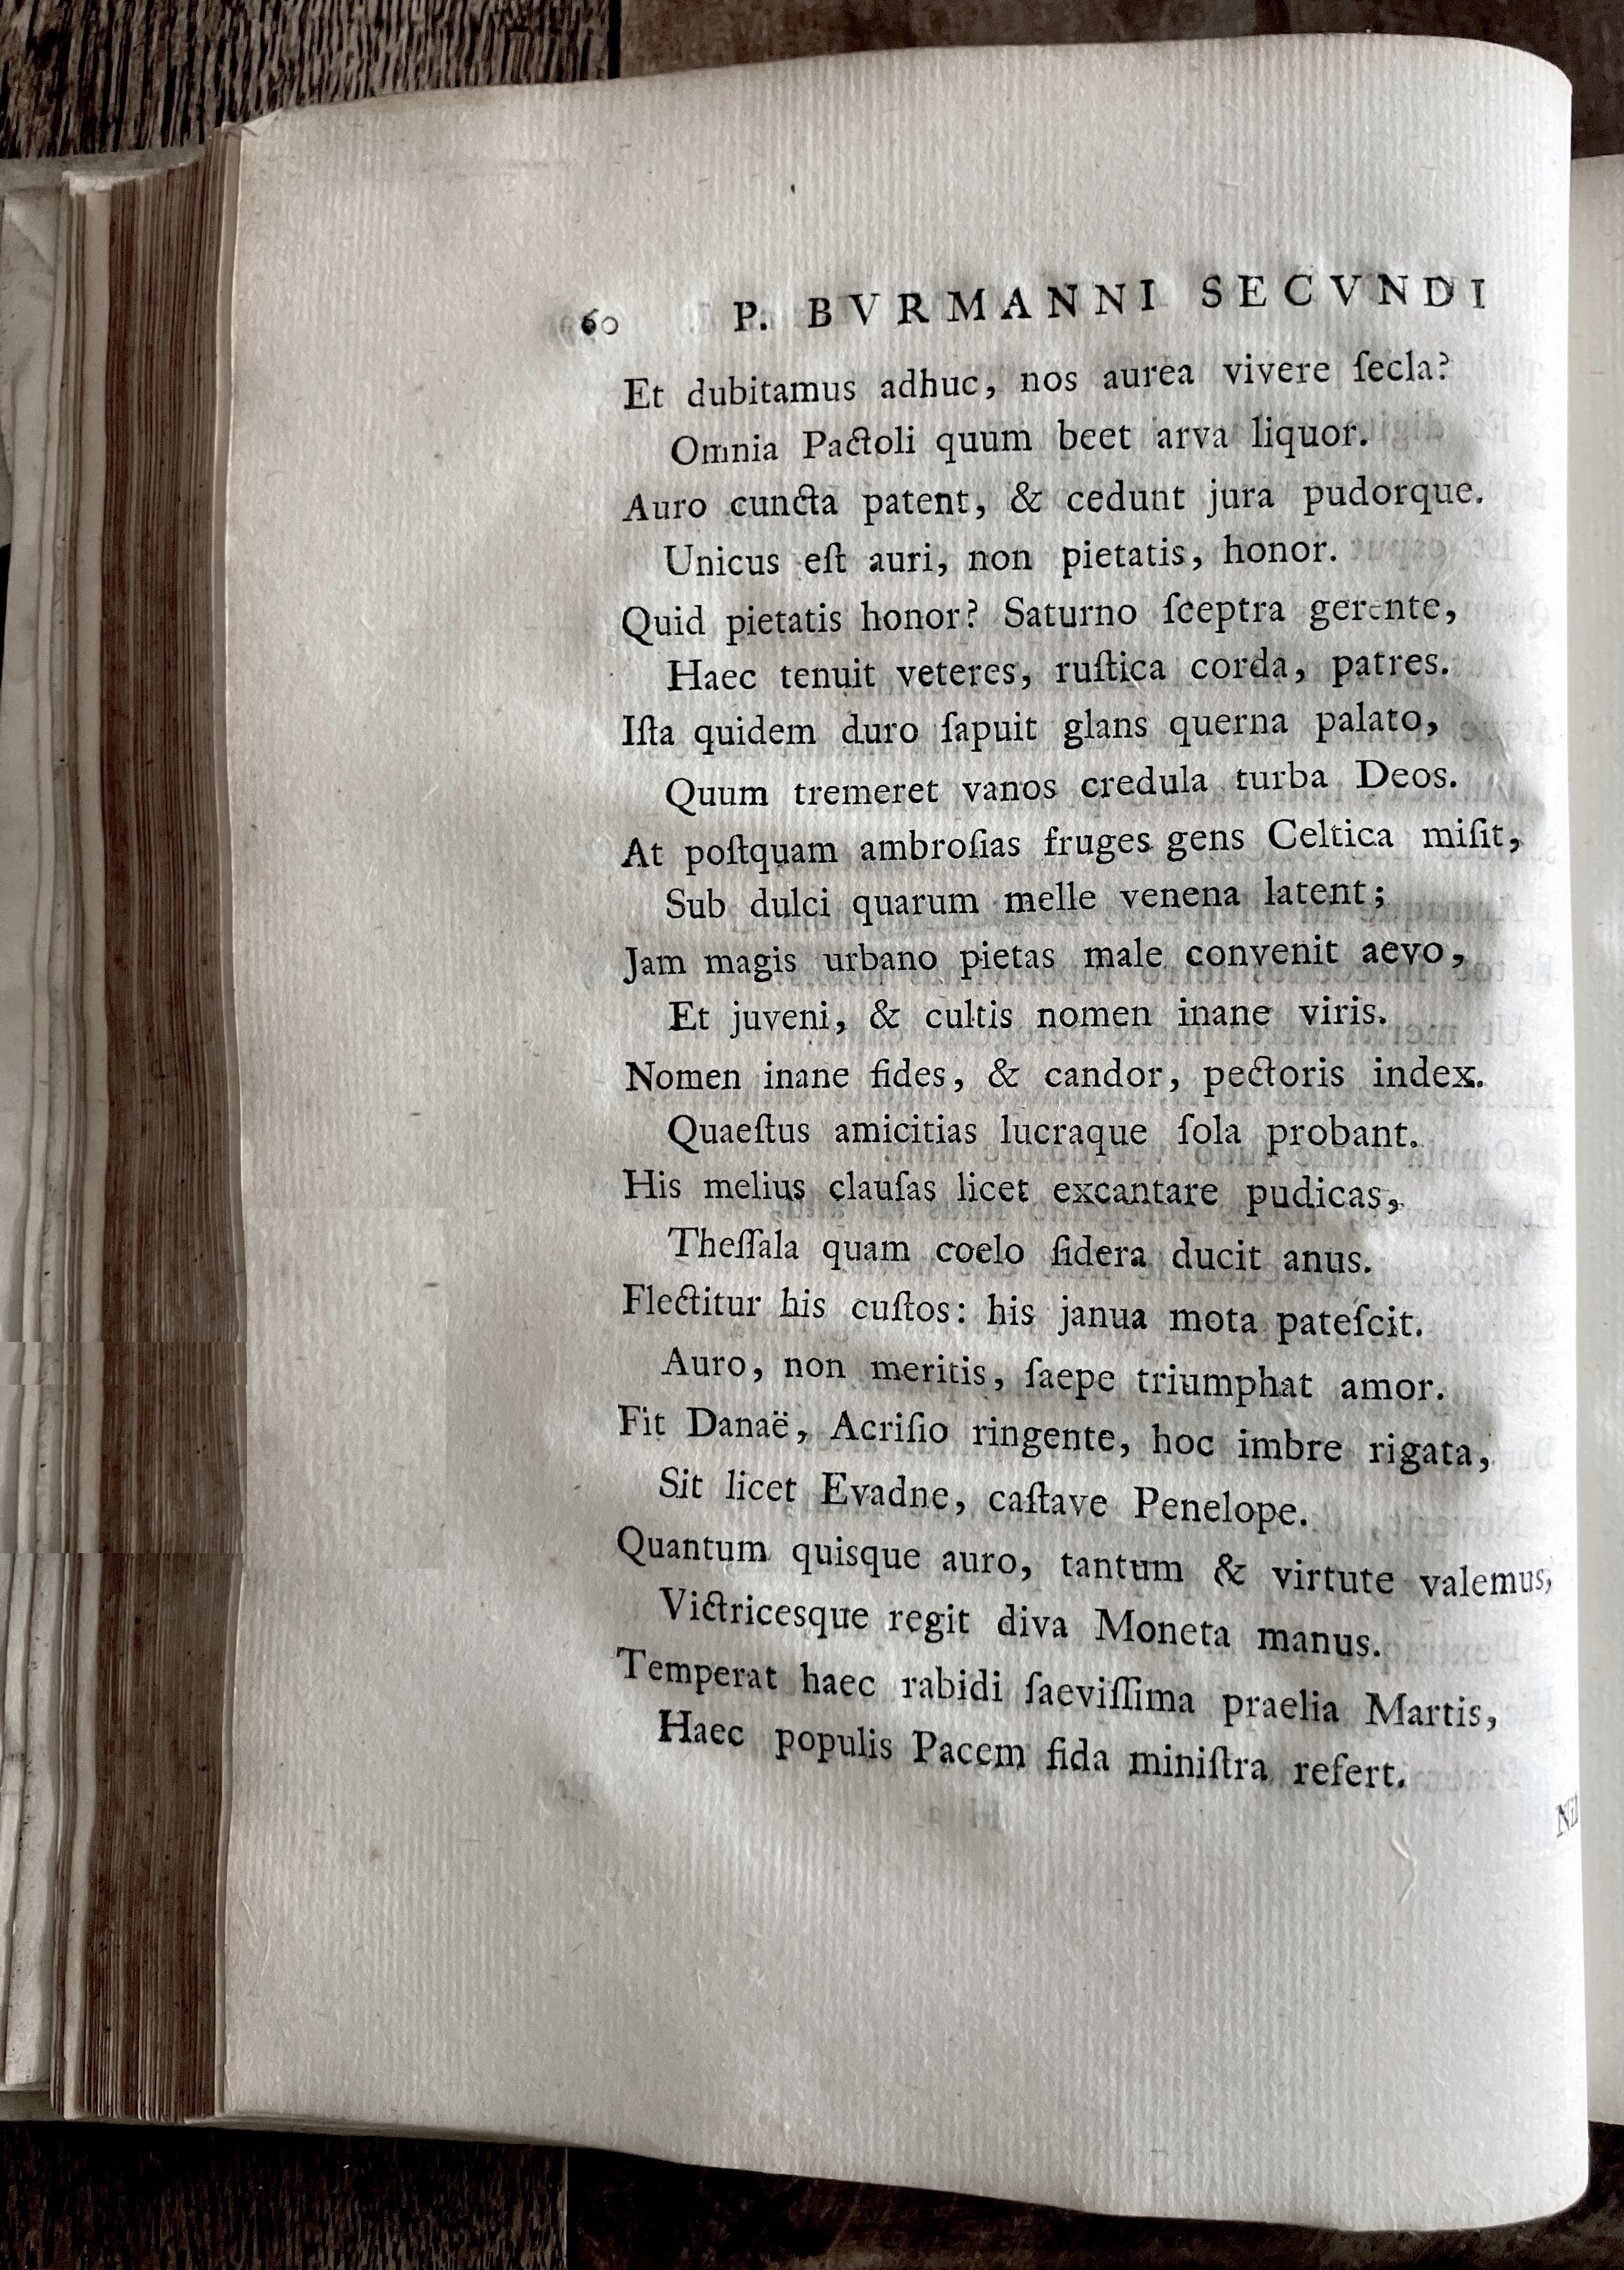 60 P. BVRMANNI SECVNDI
Et dubitamus adhuc, nos aurea vivere ſecla?
Omnia Pactoli quum beet arva liquor.
Auro cuncta patent, & cedunt jura pudorque.
Unicus eſt auri, non pietatis, honor.
Quid pietatis honor? Saturno ſceptra gerente,
Haec tenuit veteres, ruſtica corda, patres.
Iſta quidem duro ſapuit glans querna palato,
Quum tremeret vanos credula turba Deos.
At poſtquam ambroſias fruges gens Celtica miſit,
Sub dulci quarum melle venena latent;
Jam magis urbano pietas male convenit aevo,
Et juveni, & cultis nomen inane viris.
Nomen inane fides, & candor, pectoris index.
Quaeſtus amicitias lucraque ſola probant.
His melius clauſas licet excantare pudicas,
Theſſala quam coelo ſidera ducit anus.
Flectitur his cuſtos: his janua mota pateſcit.
Auro, non meritis, ſaepe triumphat amor.
Fit Danaë, Acriſio ringente, hoc imbre rigata,
Sit licet Evadne, caſtave Penelope.
Quantum quisque auro, tantum & virtute valemus,
Victricesque regit diva Moneta manus.
Temperat haec rabidi ſaeviſſima praelia Martis,
Haec populis Pacem fida miniſtra refert.